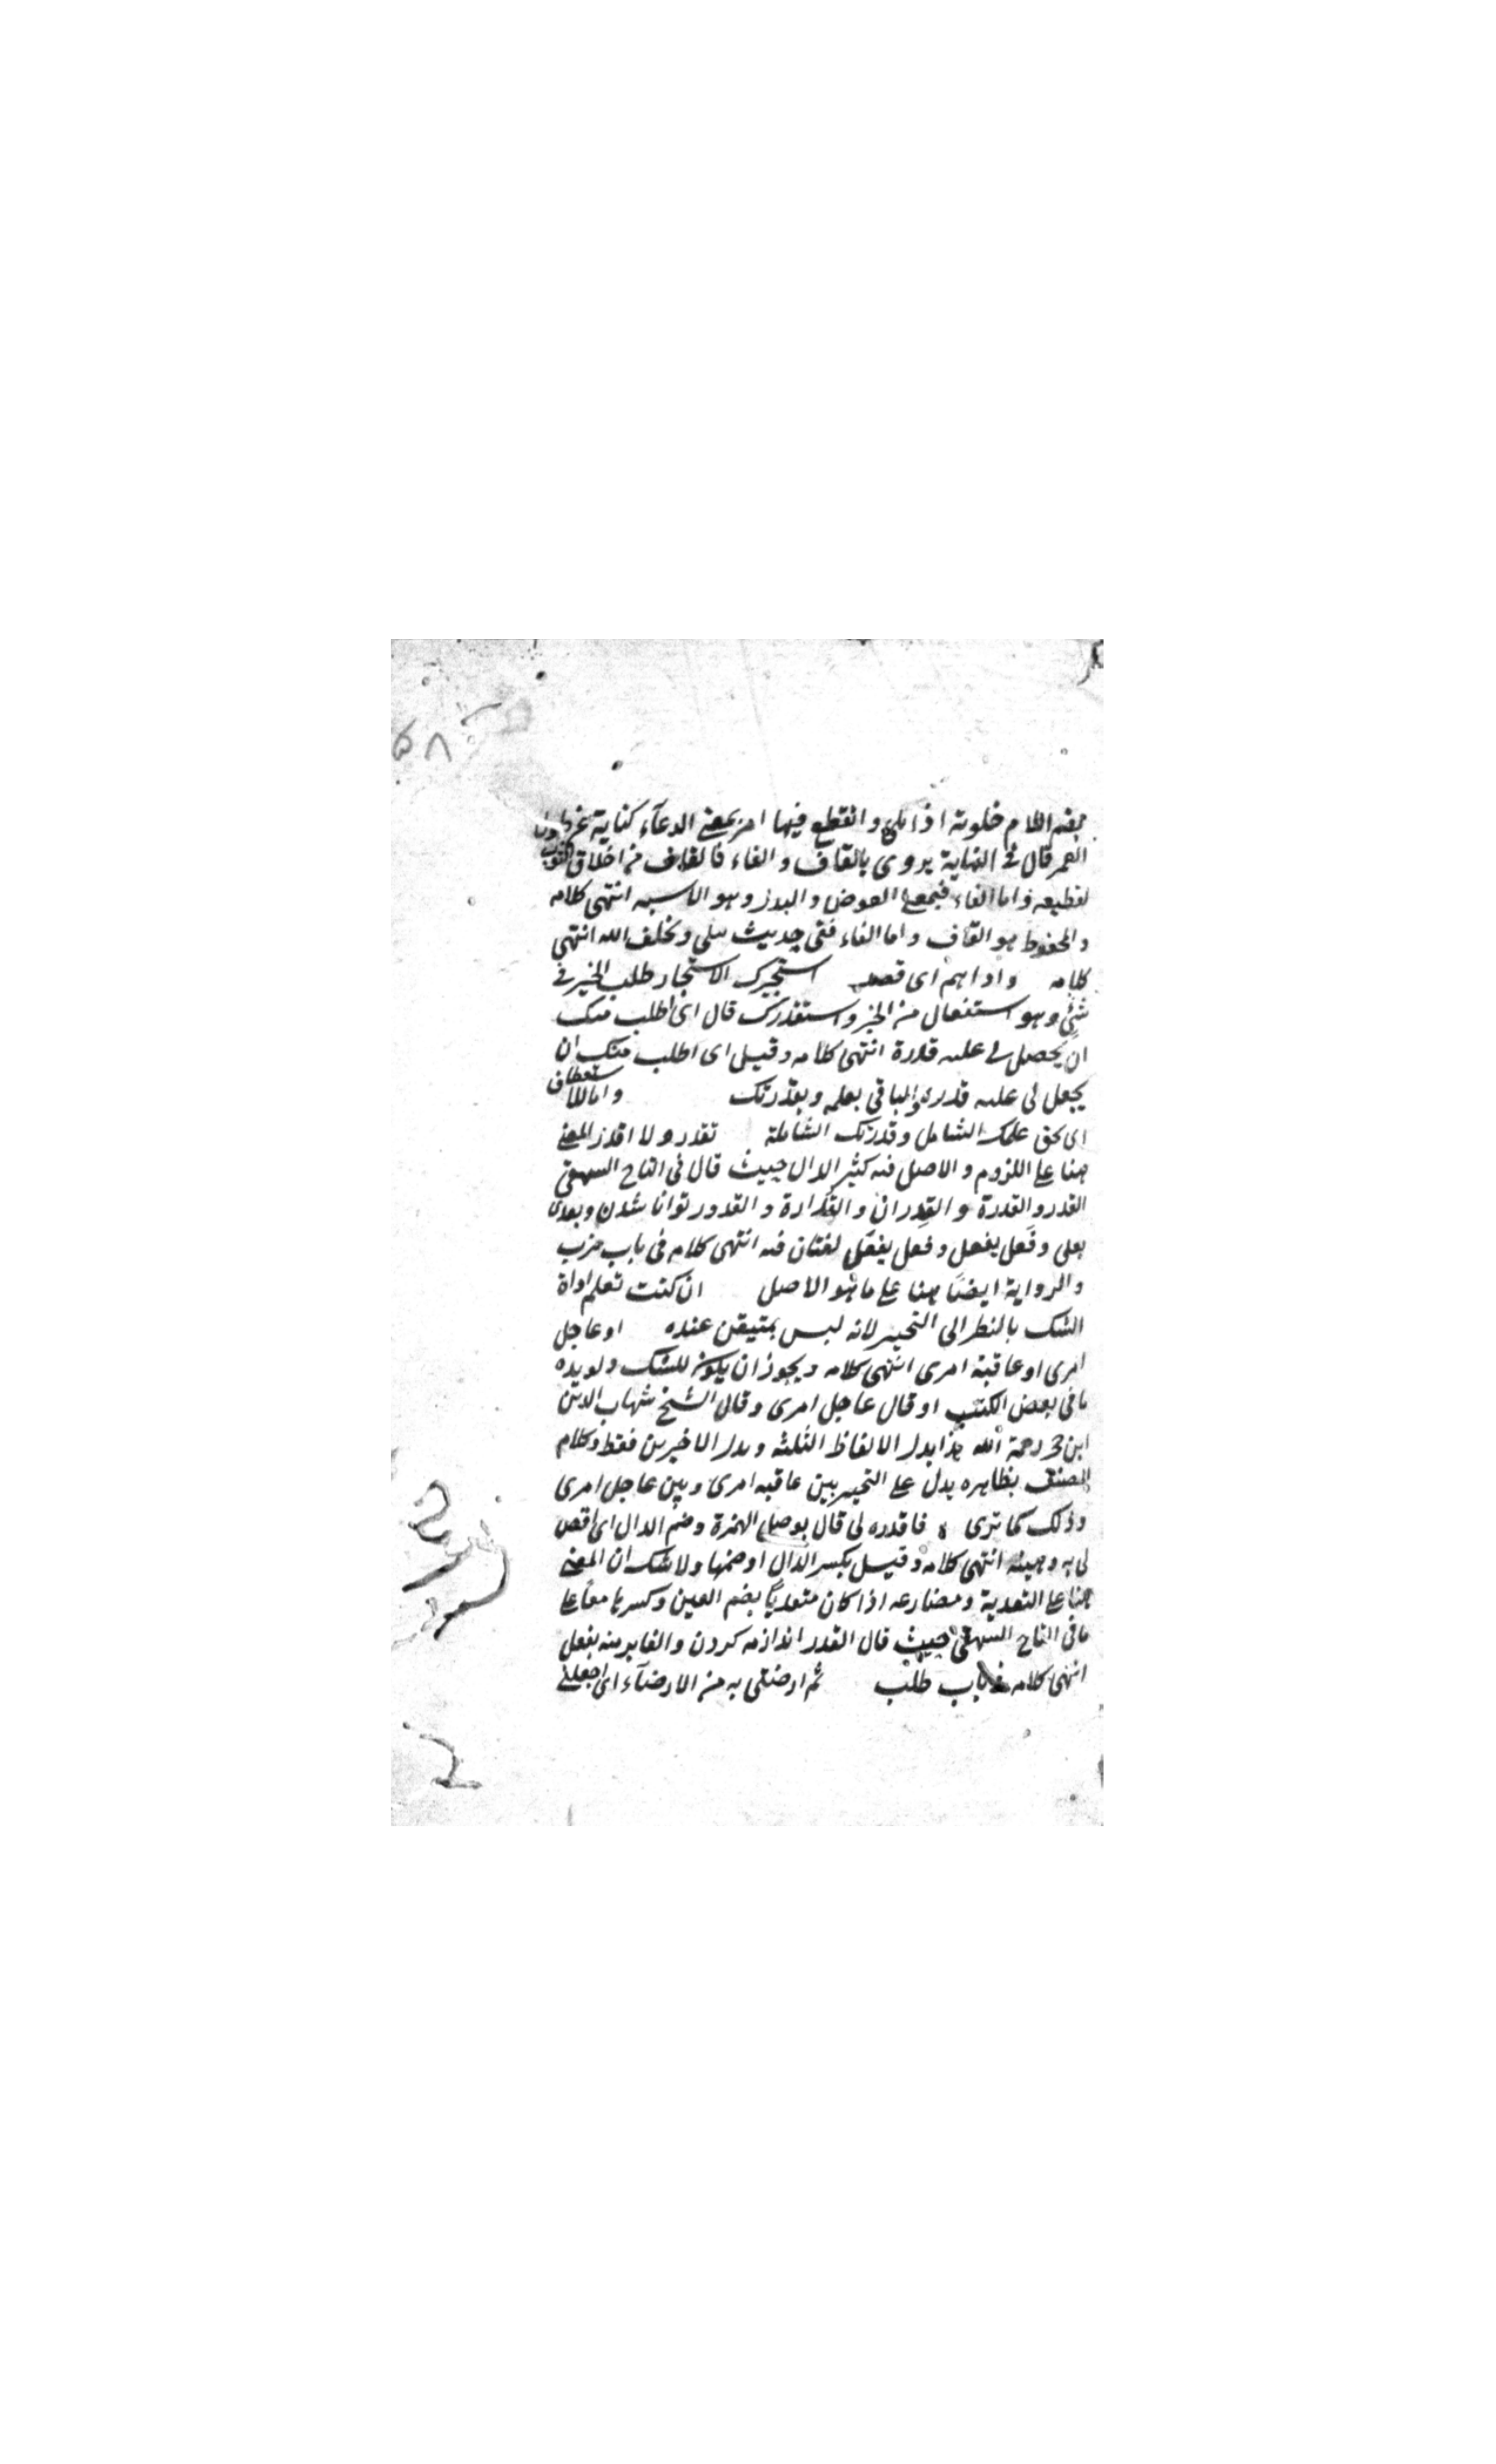 ۵۸
بفتح اللام خلوته اذا بلى وانقطع فيها امر بمعنى الدعآء كناية عن
العمر قال فى النهاية يروى بالقاف والفاء فالقاف من اخلاق الثوب
تقطيعه واما الفاء فبمعنى العوض والبدل وهو الاشبه انتهى كلامه
والمحفوظ هو القاف واما الفاء ففى حديث تبلى ويخلف الله انتهى
كلامه واذا هم اى قصد استخيرك الاستخارة طلب الخير فى
شئ وهو استفعال من الخير واستقدرك قال اى اطلب منك
ان يحصل لى عليه قدرة انتهى كلامه وقيل اى اطلب منك ان
يجعل لى عليه قدرة والباقى بعلمه وبقدرتك واما للاستعطاف
اى بحق علمك الشامل وقدرتك الشاملة تقدر ولا اقدر المعنى
هنا على اللزوم والاصل فيه كثير الدال حيث قال فى التاج البيهقى
القدر والقدرة والقدران والقدارة والقدور توانا شدن ويعدى
بعلى وفعل يفعل وفعل يفعل لغتان فيه انتهى كلامه فى باب ضرب
والرواية ايضا هنا على ما هو الاصل ان كنت تعلم اداة
الشك بالنظر الى التخيير لانه ليس بمتيقن عنده او عاجل
امرى او عاقبة امرى انتهى كلامه ويجوز ان يكون للشك ويؤيده
ما فى بعض الكتب او قال عاجل امرى وقال الشيخ شهاب الدين
ابن حجر رحمة الله هذا بدل الالفاظ الثلثة وبدل الاخيرين فقط وكلام
المصنف بظاهره يدل على التخيير بين عاقبة امرى وبين عاجل امرى
وذلك كما ترى فاقدره لى قال بوصل الهمزة وضم الدال اى اقض
لى به وهيئه انتهى كلامه وقيل بكسر الدال او ضمها ولا شك ان المعنى
هنا على التعدية ومضارعه اذا كان متعديا بضم العين وكسرها معا على
ما فى التاج البيهقى حيث قال القدر اندازه كردن والغابر منه يفعل
انتهى كلامه فى باب طلب ثم ارضنى به من الارضآء اى اجعلنى